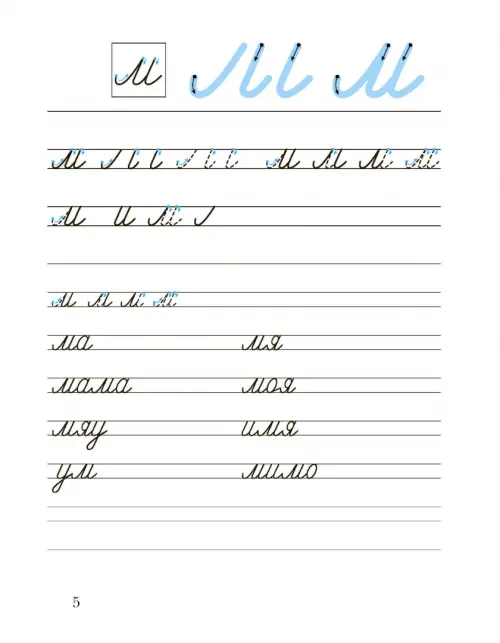 М М М
М М М М М М
М И М
м м м м
ма мя
мама моя
мяу имя
ум мимо
5